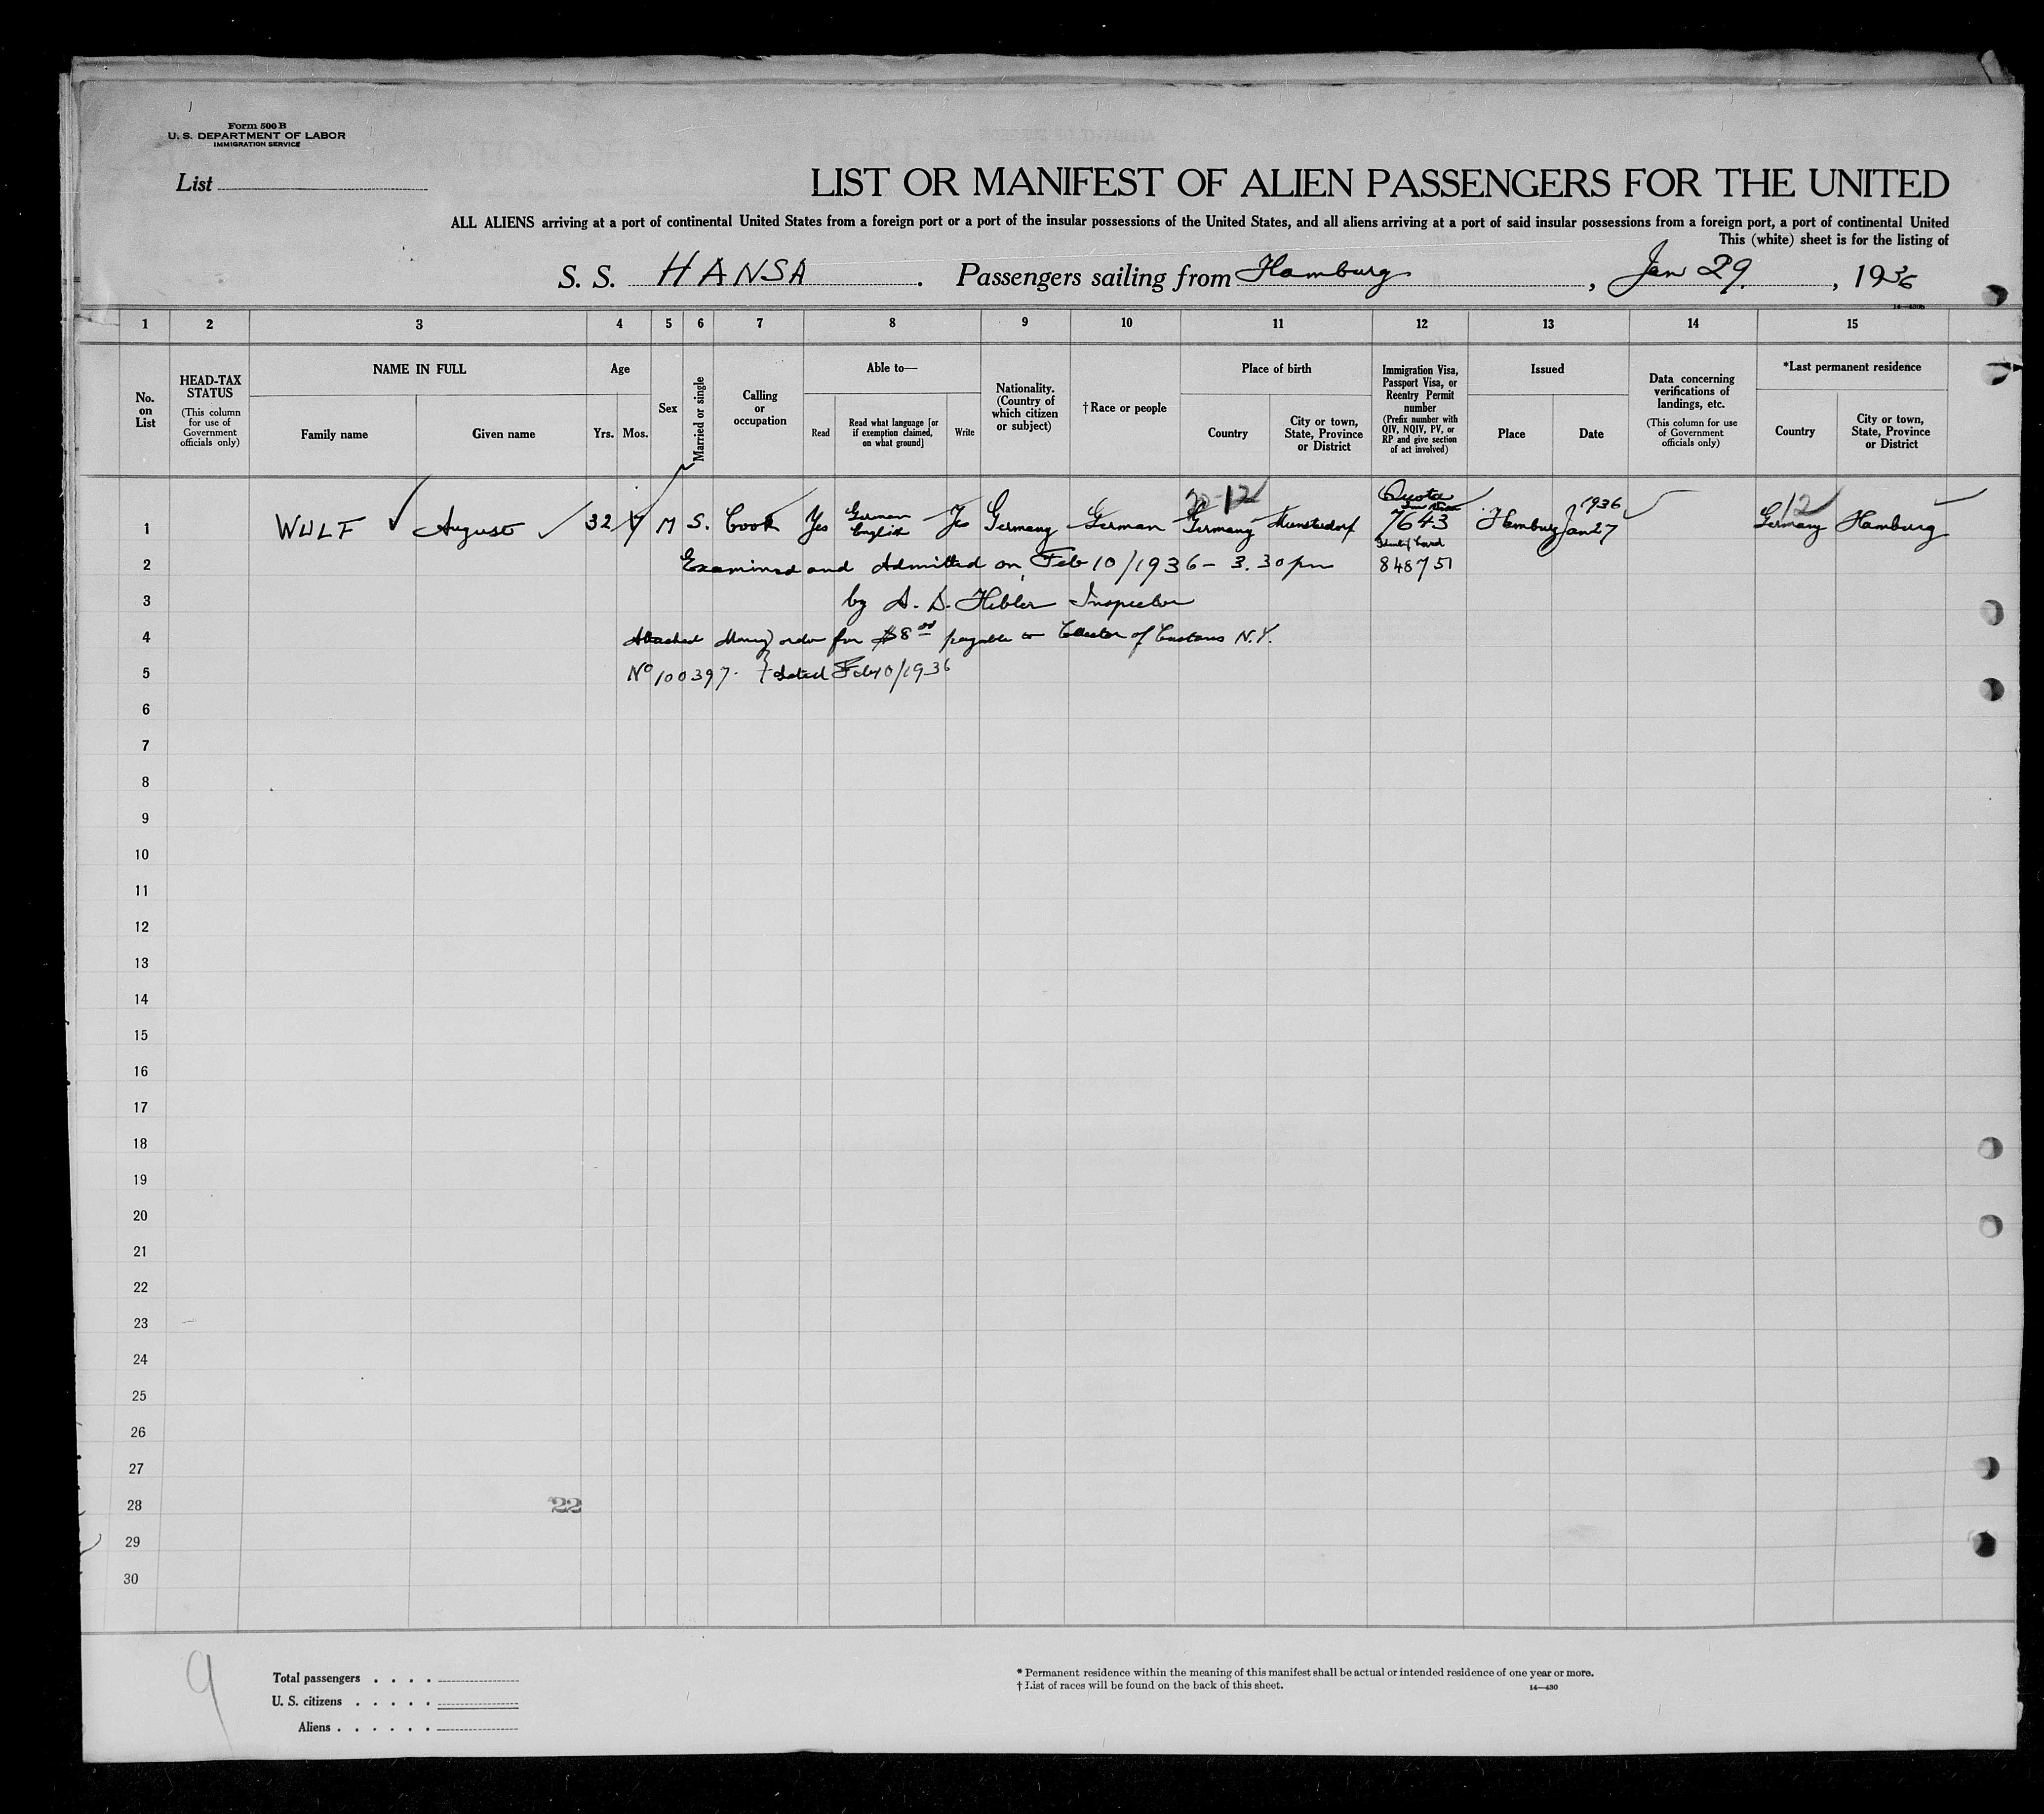 Form 500 B
U. S. DEPARTMENT OF LABOR
IMMIGRATION SERVICE
List
LIST OR MANIFEST OF ALIEN PASSENGERS FOR THE UNITED
ALL ALIENS arriving at a port of continental United States from a foreign port or a port of the insular possessions of the United States, and all aliens arriving at a port of said insular possessions from a foreign port, a port of continental United
This (white) sheet is for the listing of
S. S. HANSA. Passengers sailing from Hamburg, Jan 29., 1936
1 2 3 4 5 6 7 8 9 10 11 12 13 14 15
No. on List
HEAD-TAX STATUS
(This column for use of Government officials only)
NAME IN FULL
Family name
Given name
Age
Yrs. Mos.
Sex
Married or single
Calling or occupation
Able to—
Read
Read what language [or if exemption claimed, on what ground]
Write
Nationality. (Country of which citizen or subject)
†Race or people
Place of birth
Country
City or town, State, Province or District
Immigration Visa, Passport Visa, or Reentry Permit number
(Prefix number with QIV, NQIV, PV, or RP and give section of act involved)
Issued
Place
Date
Data concerning verifications of landings, etc.
(This column for use of Government officials only)
*Last permanent residence
Country
City or town, State, Province or District
12
Quota
1936
12
1 WULF August 32 M S. Cook Yes German English Yes Germany German Germany Munsterdorf 7643 Hamburg Jan 27 Germany Hamburg
2 Examined and Admitted on Feb 10/1936 - 3.30 pm 848751
3 by A. D. Hibler Inspector
4 Attached Money order for $8 payable to Collector of Customs N.Y.
5 No 100397. dated Feb 10/1936
6
7
8
9
10
11
12
13
14
15
16
17
18
19
20
21
22
23
24
25
26
27
28 22
29
30
9
Total passengers . . . .
U. S. citizens . . . . .
Aliens . . . . . .
* Permanent residence within the meaning of this manifest shall be actual or intended residence of one year or more.
† List of races will be found on the back of this sheet.
14—430